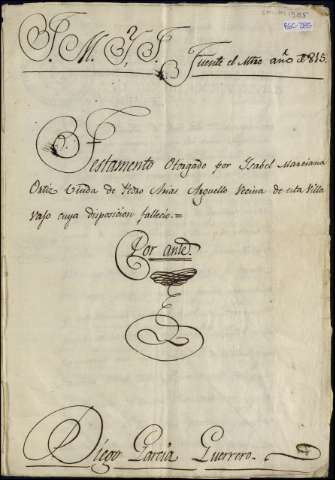 J. M. Y J. Fuente el Mtro año d 1815.
Testamento Otorgado por Isabel Marciana
Ortiz Viuda de Pedro Arias Arguello Vecina de esta Villa
vajo cuya disposicion fallecio.=
Por ante.
Diego Garcia Guerrero.